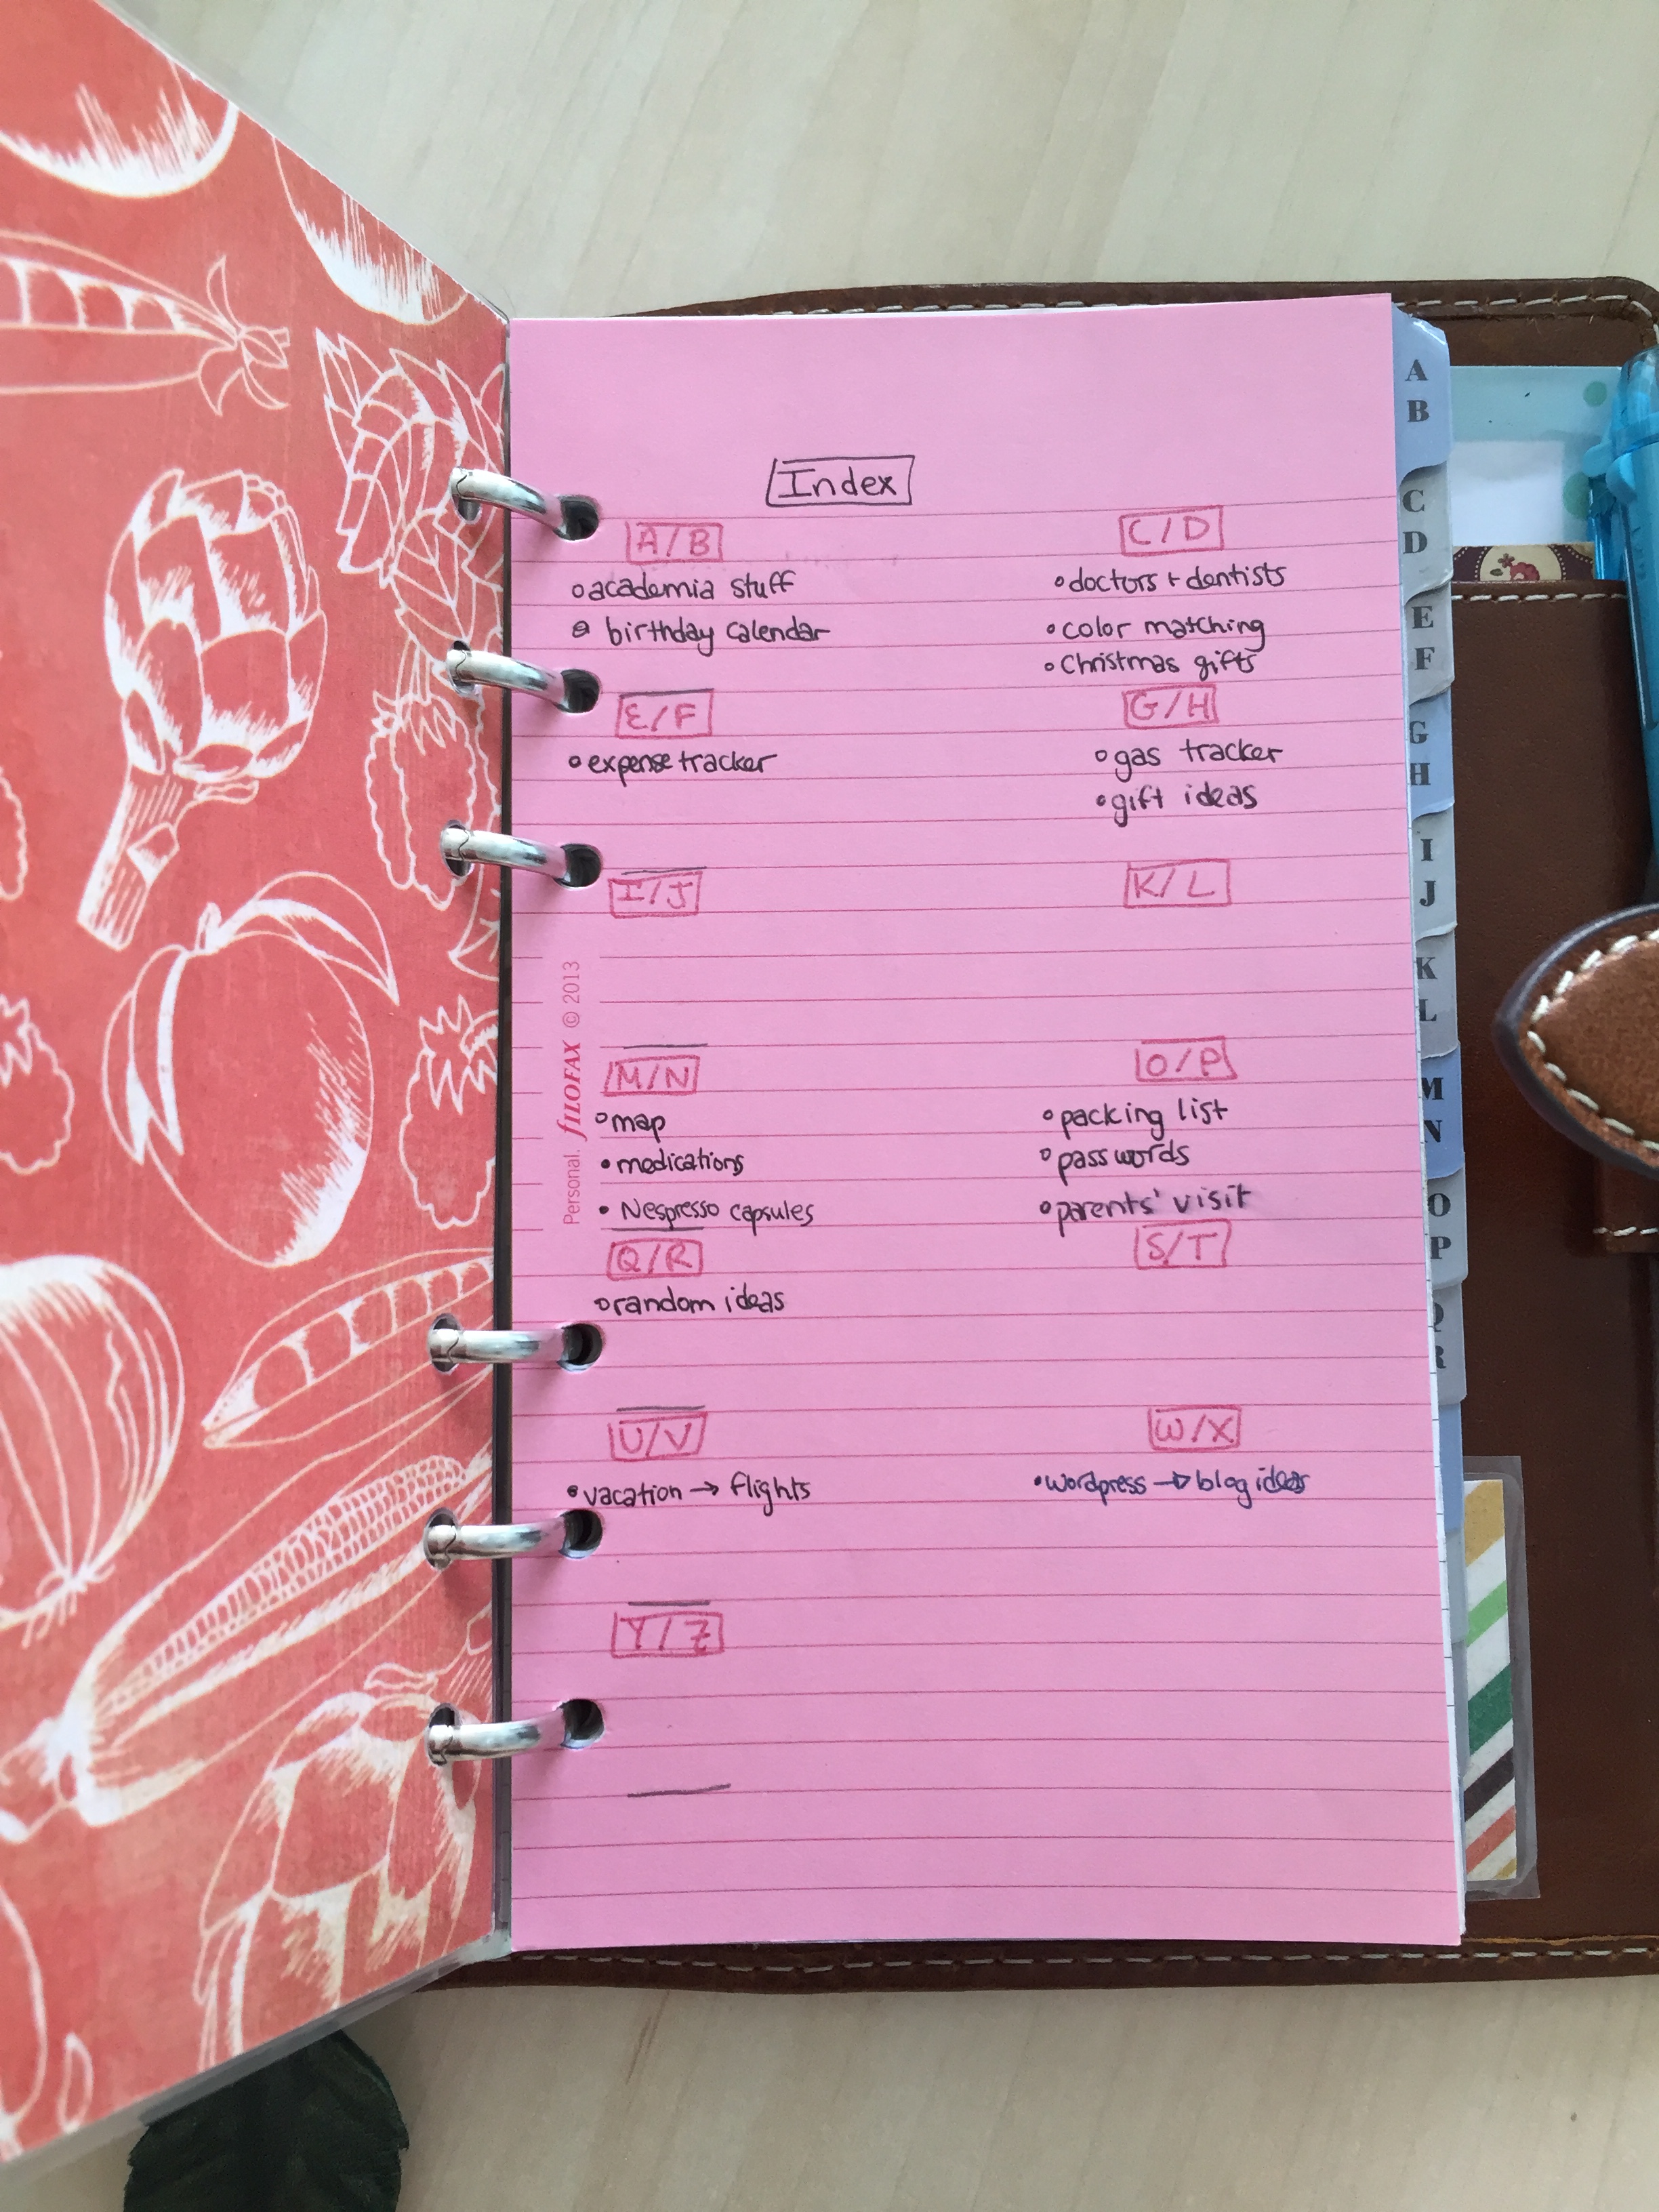 Index
A/B
academia stuff
birthday calendar
C/D
doctors + dentists
color matching
Christmas gifts
E/F
expense tracker
G/H
gas tracker
gift ideas
I/J
K/L
M/N
map
medications
Nespresso capsules
O/P
packing list
passwords
parents' visit
Q/R
random ideas
S/T
U/V
vacation → flights
W/X
wordpress → blog ideas
Y/Z
Personal. fILOFAX © 2013
A
B
C
D
E
F
G
H
I
J
K
L
M
N
O
P
Q
R